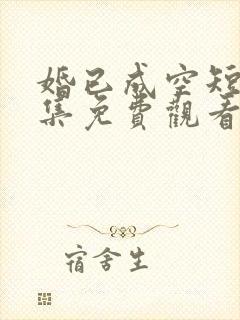 婚已成空短
集免費觀看
宿舍生